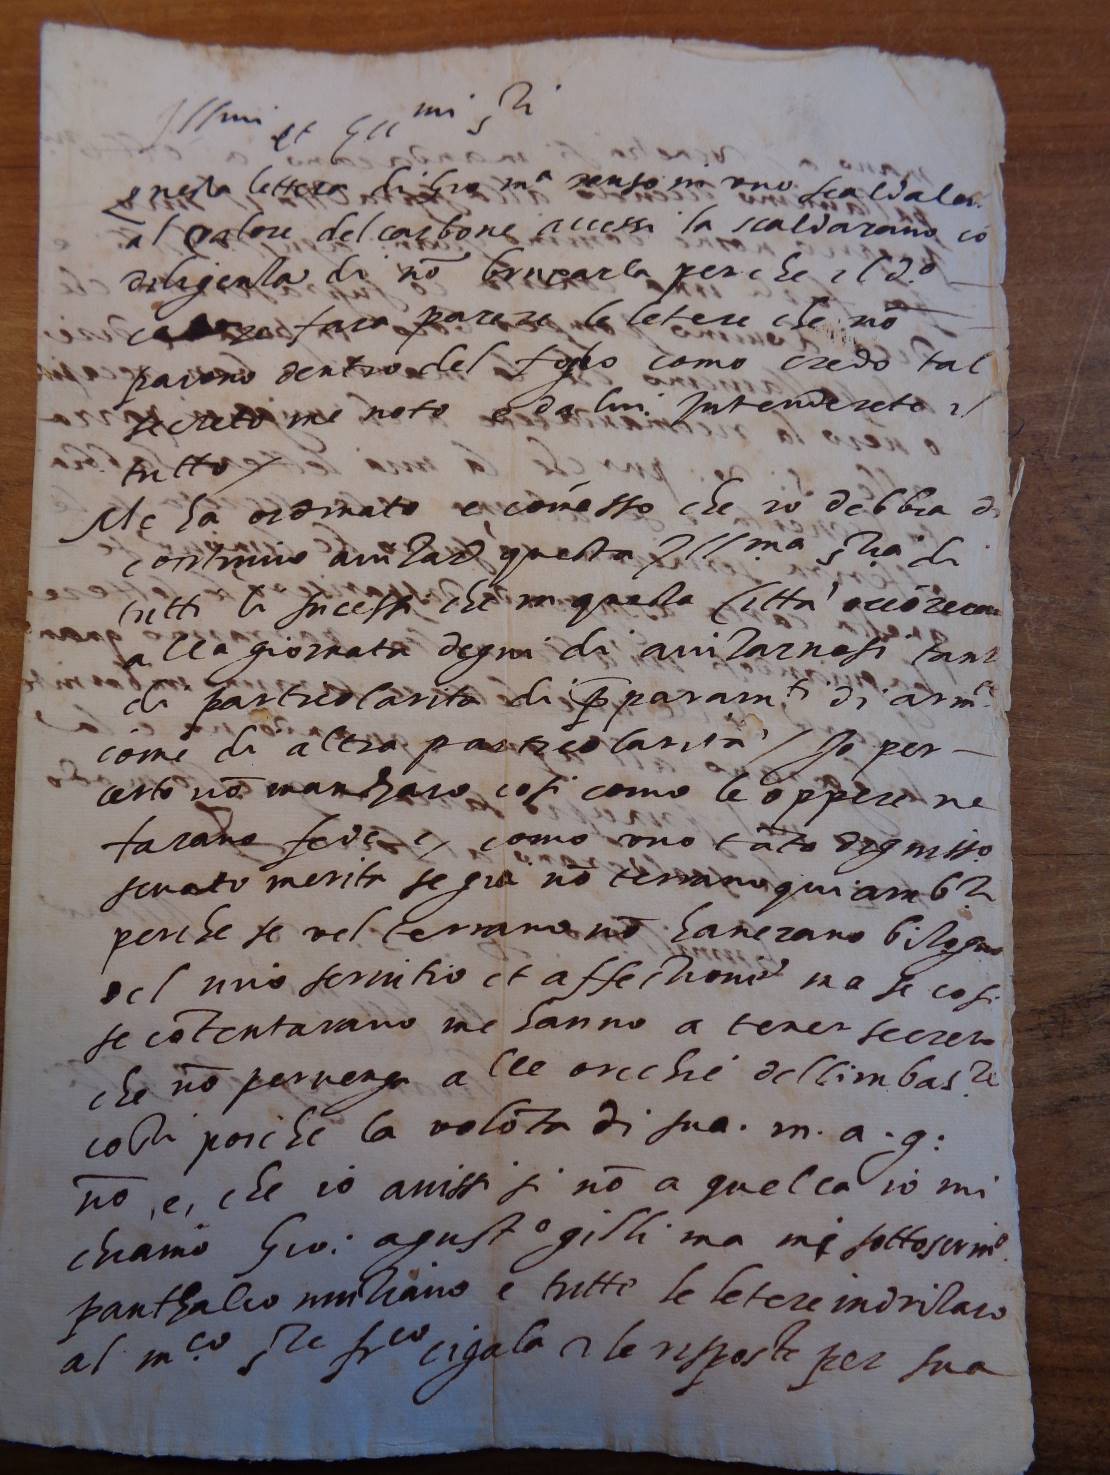 Ill.mi et Ecc.mi S.ri
questa lettera di Gio ma senso in uno scaldalet.
al calore del carbone accessi la scaldarano co
diligentia di nõ bruçarla perche il d.o
calore fara parere le letere che nõ
parono dentro del foglio como credo tal
secreto me noto e da lui intenderete il
tutto /
Me ha ordinato e comesso che io debbia di
continuo avisar questa Ill.ma S.ria di
tutti li sucessi che in questa Città occorerano
alla giornata degni di avisarnesi tant
di particolarita di p̃param.ti di arm.te
come di altra particolarita / Io per
certo nõ mancharo cosi como le oppere ne
farano fede e, como uno tãto dignisso.
senato merita se gia nõ terrano qui amb.ri
perche se vel terrano nõ haverano bisogno
del mio servitio et affectione ma se cosi
se cõtentarano me hanno a tener secreto
che nõ pervenga alle orechie dell imbas.re
costi poiche la volõta di sua. m. a. g:
nõ, e, che io avissi si nõ a quella io mi
chiamo Gio: agust.o gilli ma mi sottoscrivo
panthaleo miliano e tutte le letere indrisaro
al m.co S.re fr.co cigala e le resposte per sua